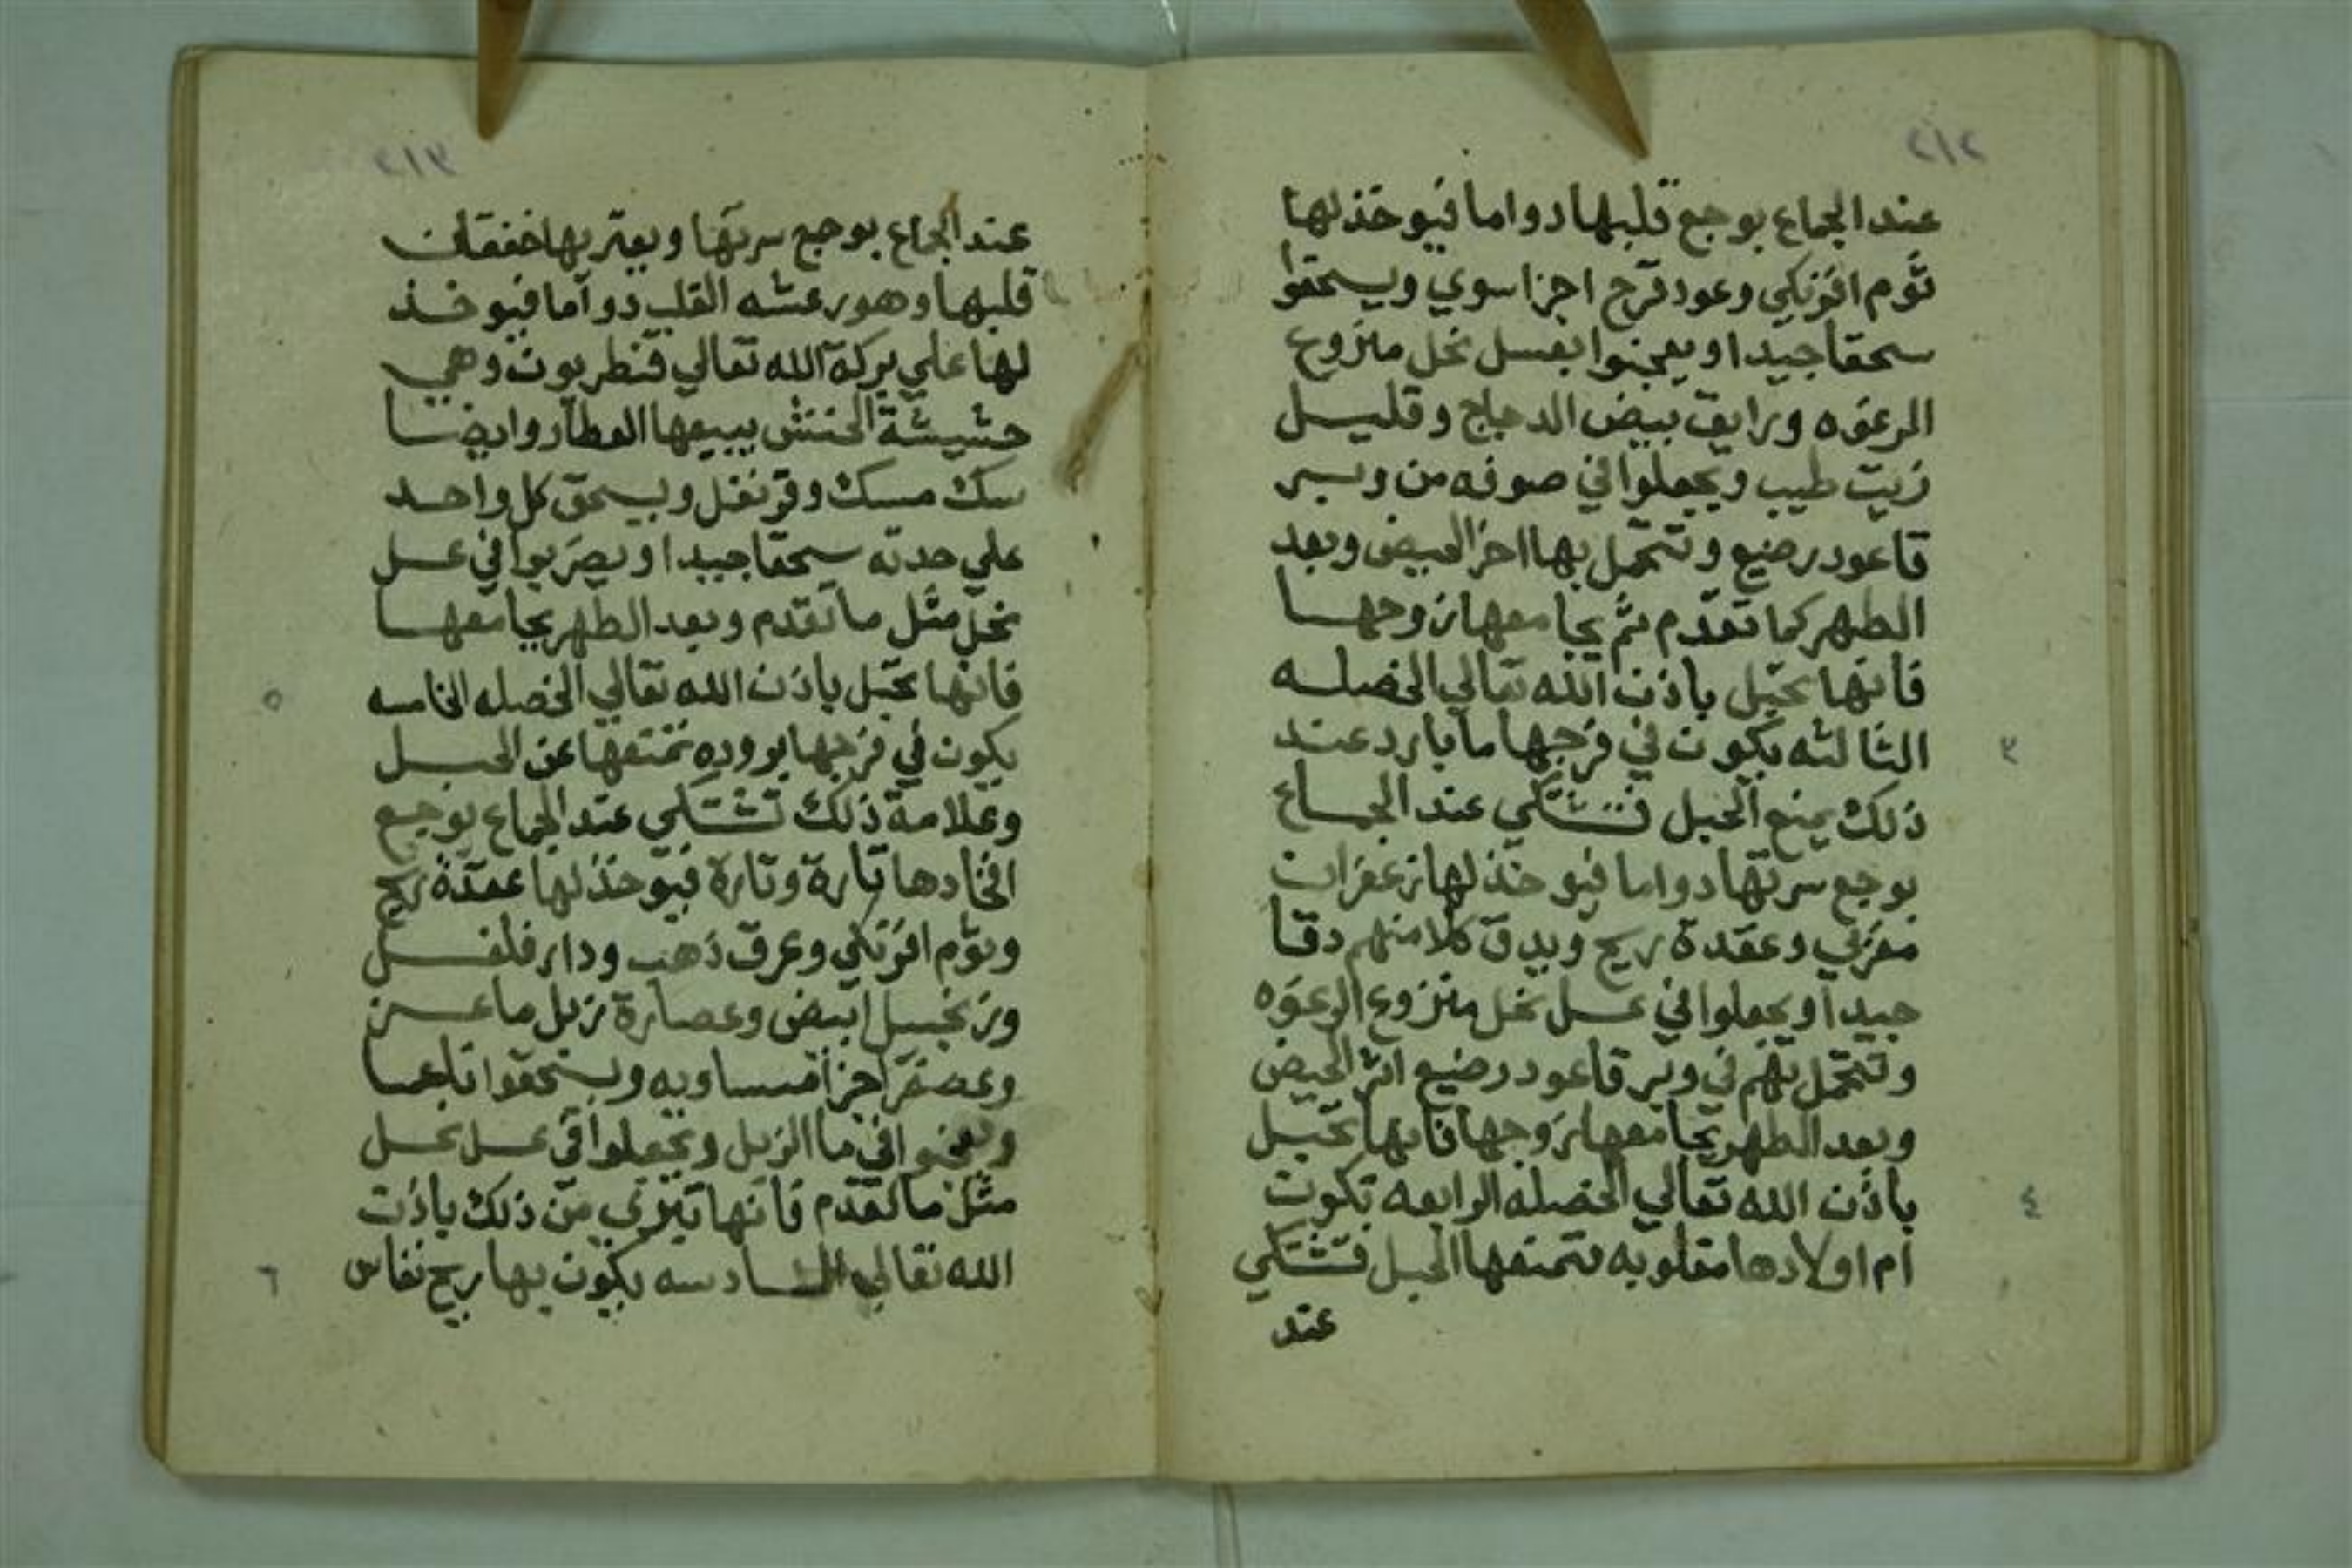 ٢١٢
عند الجماع بوجع قلبها دواما فيوخذ لها
ثوم افرنكي وعود قرح اجزا سوي ويسحقوا
سحقا جيدا ويعجنوا بعسل نحل منزوع
الرغوه ورايق بيض الدجاج وقليل
زيت طيب ويجعلوا في صوفه من وبر
قاعود رضيع وتتحمل بها اخر الحيض وبعد
الطهر كما تقدم ثم يجامعها زوجها
فانها تحبل باذن الله تعالي الخصله
الثالثه يكون في فرجها ما بارد عند ٣
ذلك يمنع الحبل فتشتكي عند الجماع
بوجع سرتها دواما فيوخذ لها زعفران
مغربي وعقدة ريح ويدق كلا منهم دقا
جيدا ويجعلوا في عسل نحل منزوع الرغوه
وتتحمل بهم في وبر قاعود رضيع اثر الحيض
وبعد الطهر يجامعها زوجها فانها تحبل
باذن الله تعالي الخصله الرابعه تكون ٤
ام اولادها مقلوبه فتمنعها الحبل فتشتكي
عند
٢١٣
عند الجماع بوجع سرتها ويعتريها خفقان
قلبها وهو رعشه القلب دواما فيوخذ
لها علي بركة الله تعالي قنطريون وهي
حشيشة الحنش يبيعها العطار وايضا
سك مسك وقرنفل ويسحق كل واحد
علي حدته سحقا جيدا ويضربوا في عسل
نحل مثل ما تقدم وبعد الطهر يجامعها
فانها تحبل باذن الله تعالي الخصله الخامسه ٥
يكون في فرجها بروده تمنعها عن الحبل
وعلامة ذلك تشتكي عند الجماع بوجع
افخادها تارة وتارة فيوخذ لها عقدة ريح
وثوم افرنكي وعرق ذهب ودار فلفل
وزنجبيل ابيض وعصارة زبل ماعز
وعصفر اجزا متساويه ويسحقوا ناعما
ويعجنوا في ما الزبل ويجعلوا في عسل نحل
مثل ما تقدم فانها تبري من ذلك باذن
الله تعالي السادسه يكون بها ريح نفاس ٦